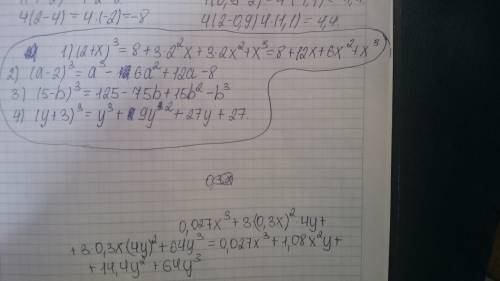 4(2-4) = 4·(-2) = -8
4(2-0,9) 4·(1,1) = 4,4.
1) (2+x)³ = 8 + 3·2²x + 3·2x² + x³ = 8 + 12x + 6x² + x³
2) (a-2)³ = a³ - 6a² + 12a - 8
3) (5-b)³ = 125 - 75b + 15b² - b³
4) (y+3)³ = y³ + 9y² + 27y + 27.
0,027x³ + 3(0,3x)² 4y +
+ 3·0,3x(4y)² + 64y³ = 0,027x³ + 1,08x²y +
+ 14,4y² + 64y³